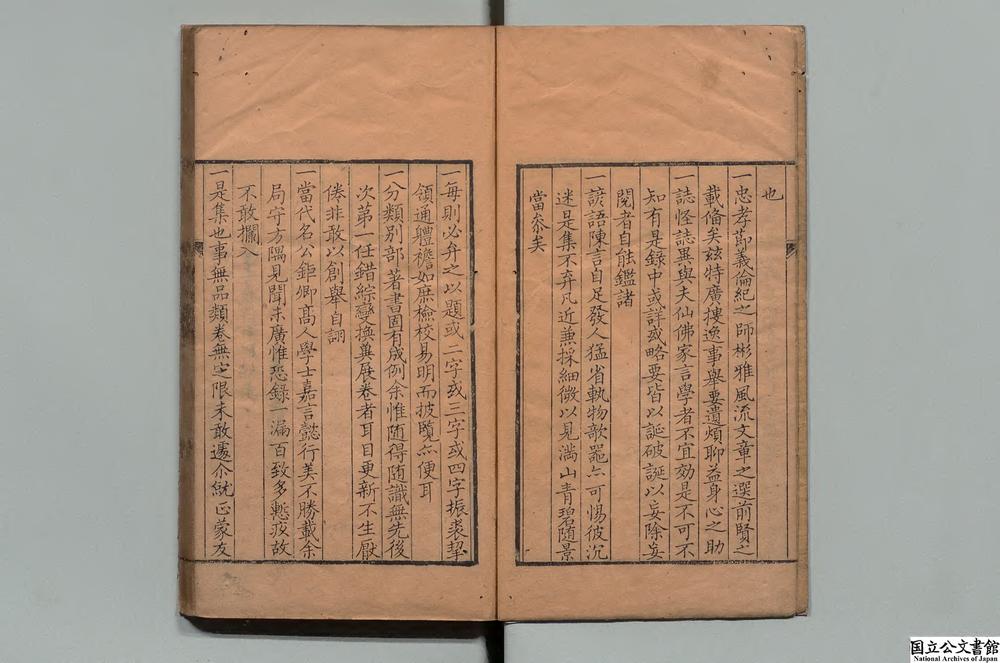 也
一忠孝節義倫紀之師彬雅風流文章之選前賢之
載俻矣兹特廣搜逸事舉要遺煩聊益身心之助
一誌怪誌異與夫仙佛家言學者不宜効是不可不
知有是錄中或詳或略要皆以誕破誕以妄除妄
閱者自能鑑諸
一諺語陳言自足發人猛省執物歌器亦可惕彼沉
迷是集不弃凡近兼採細微以見滿山青碧随景
當叅矣
一每則必弁之以題或二字或三字或四字振裘挈
領通軆襜如庶檢校易明而披覽亦便耳
一分類別部著書固有成例余惟随得随識無先後
次第一任錯綜變換兾展卷者耳目更新不生厭
倦非敢以創舉自詡
一當代名公鉅卿髙人學士嘉言懿行美不勝載余
局守方隅見聞未廣惟恐錄一漏百致多慙疚故
不敢攔入
一是集也事無品類卷無定限未敢遽尒就正蒙友
国立公文書館
National Archives of Japan